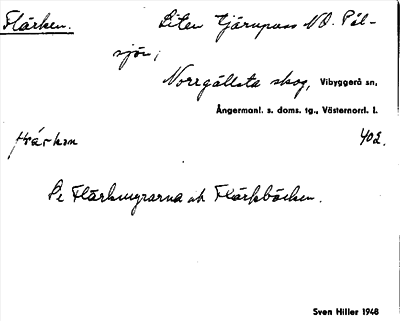 Flärken. Liten Tjärnpuss N.O. Pål-
sjön,
Norrgällsta skog, Vibyggerå sn,
Ångermanl. s. doms. tg., Västernorrl. l.
402.
Se Flärkmyrarna och Flärkbäcken.
Sven Hiller 1948